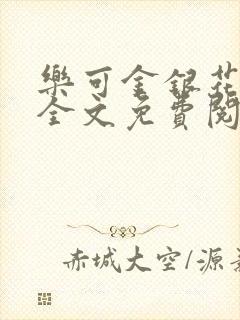 樂可金銀花
全文免費閱
赤城大空/源